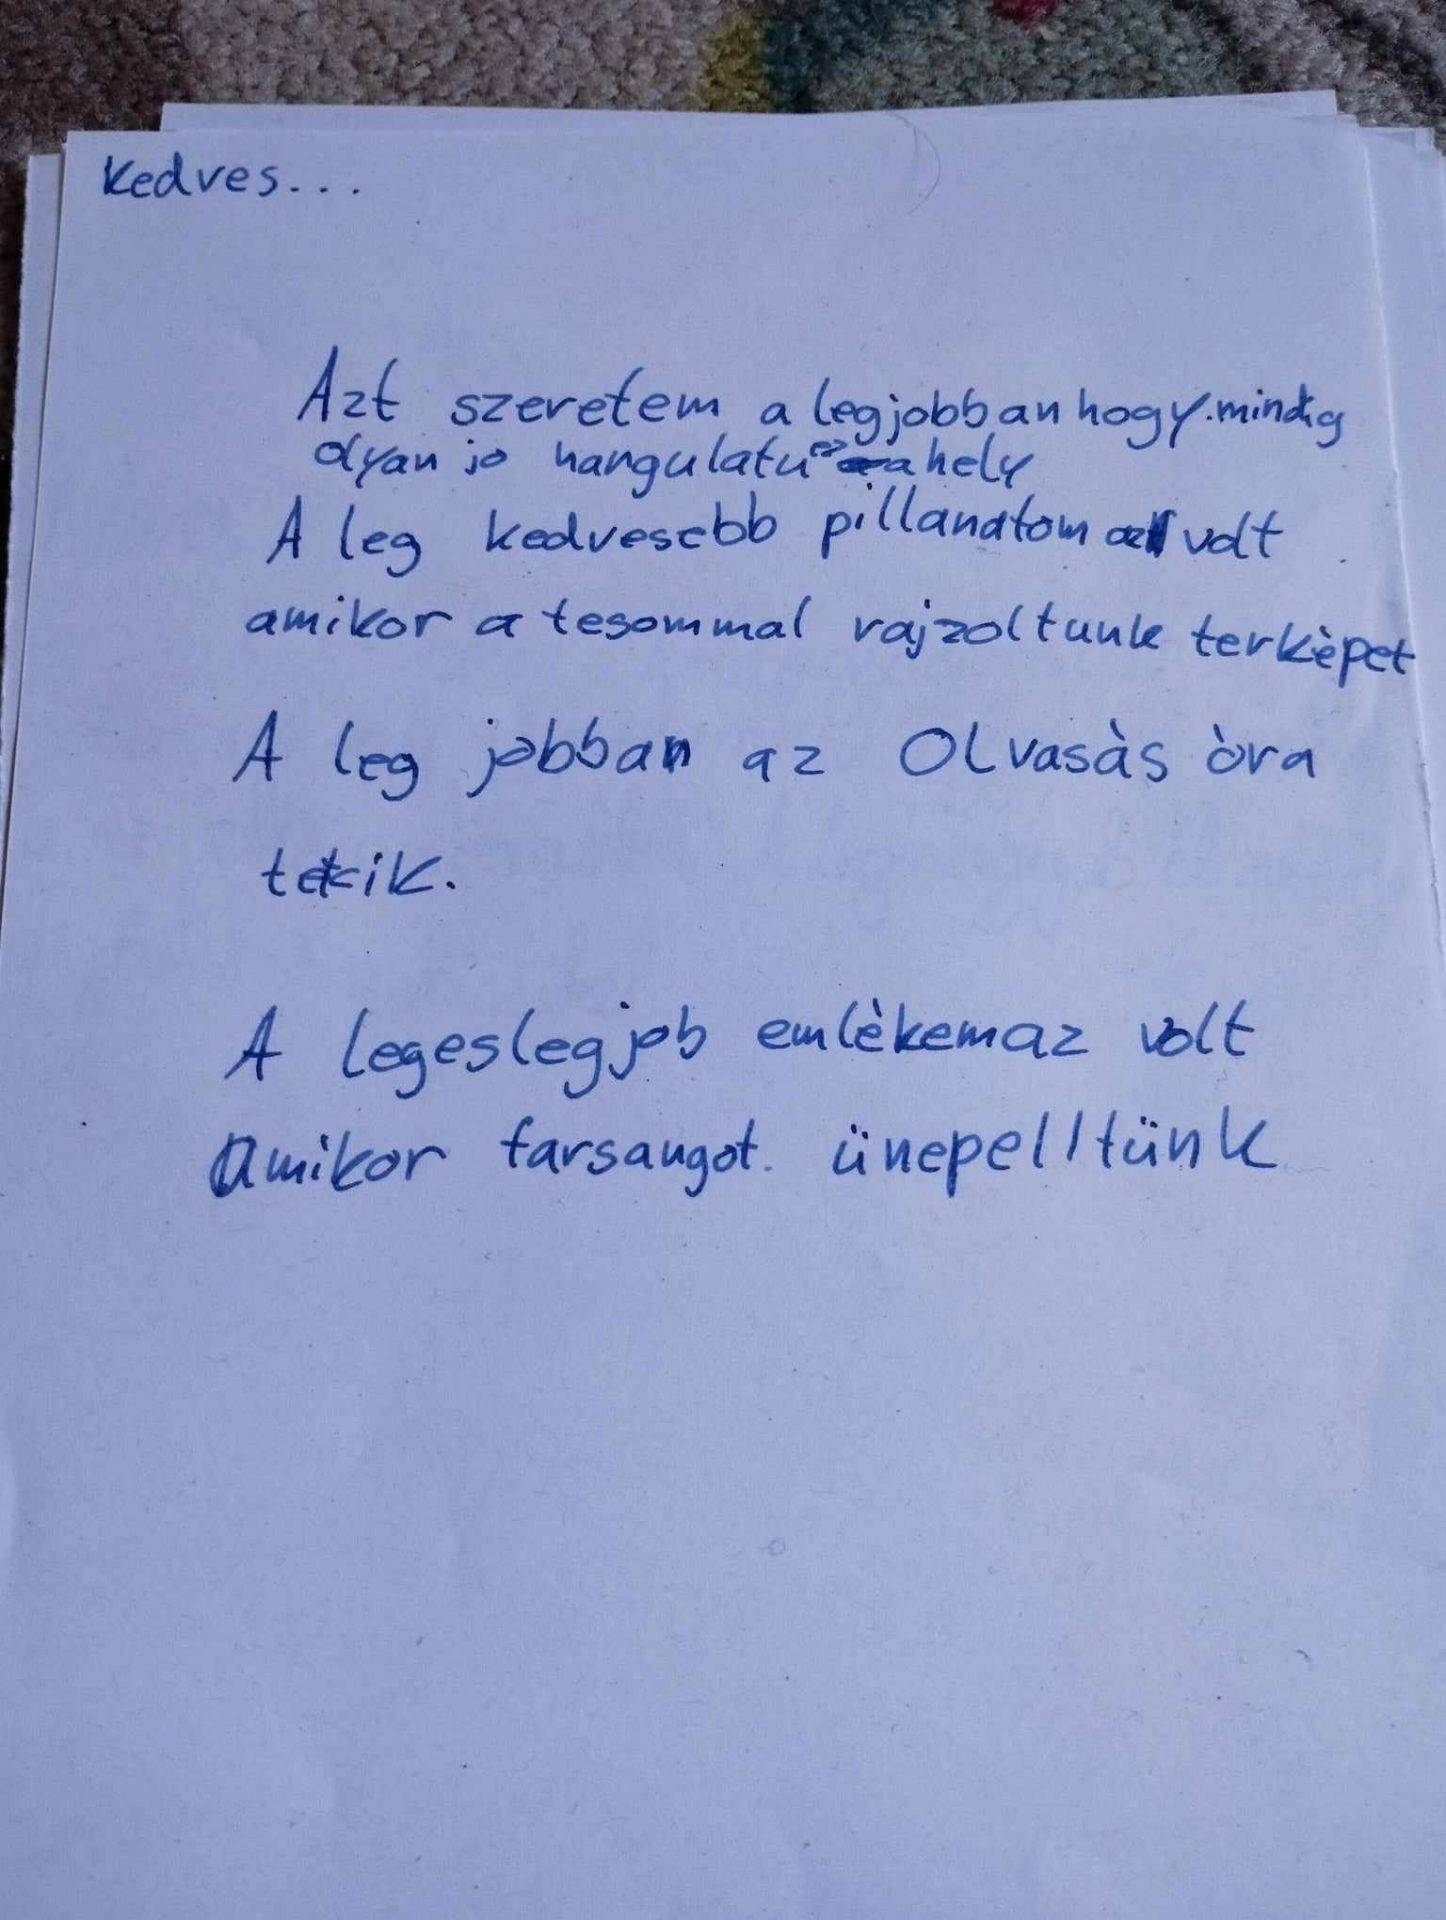 Kedves...
Azt szeretem a legjobban hogy mindig
olyan jo hangulatu a hely
A leg kedvesebb pillanatom az volt
amikor a tesommal rajzoltunk terkèpet
A leg jobban az Olvasàs òra
tetcik.
A legeslegjob emlèkemaz volt
Amikor farsangot. ünepelltünk